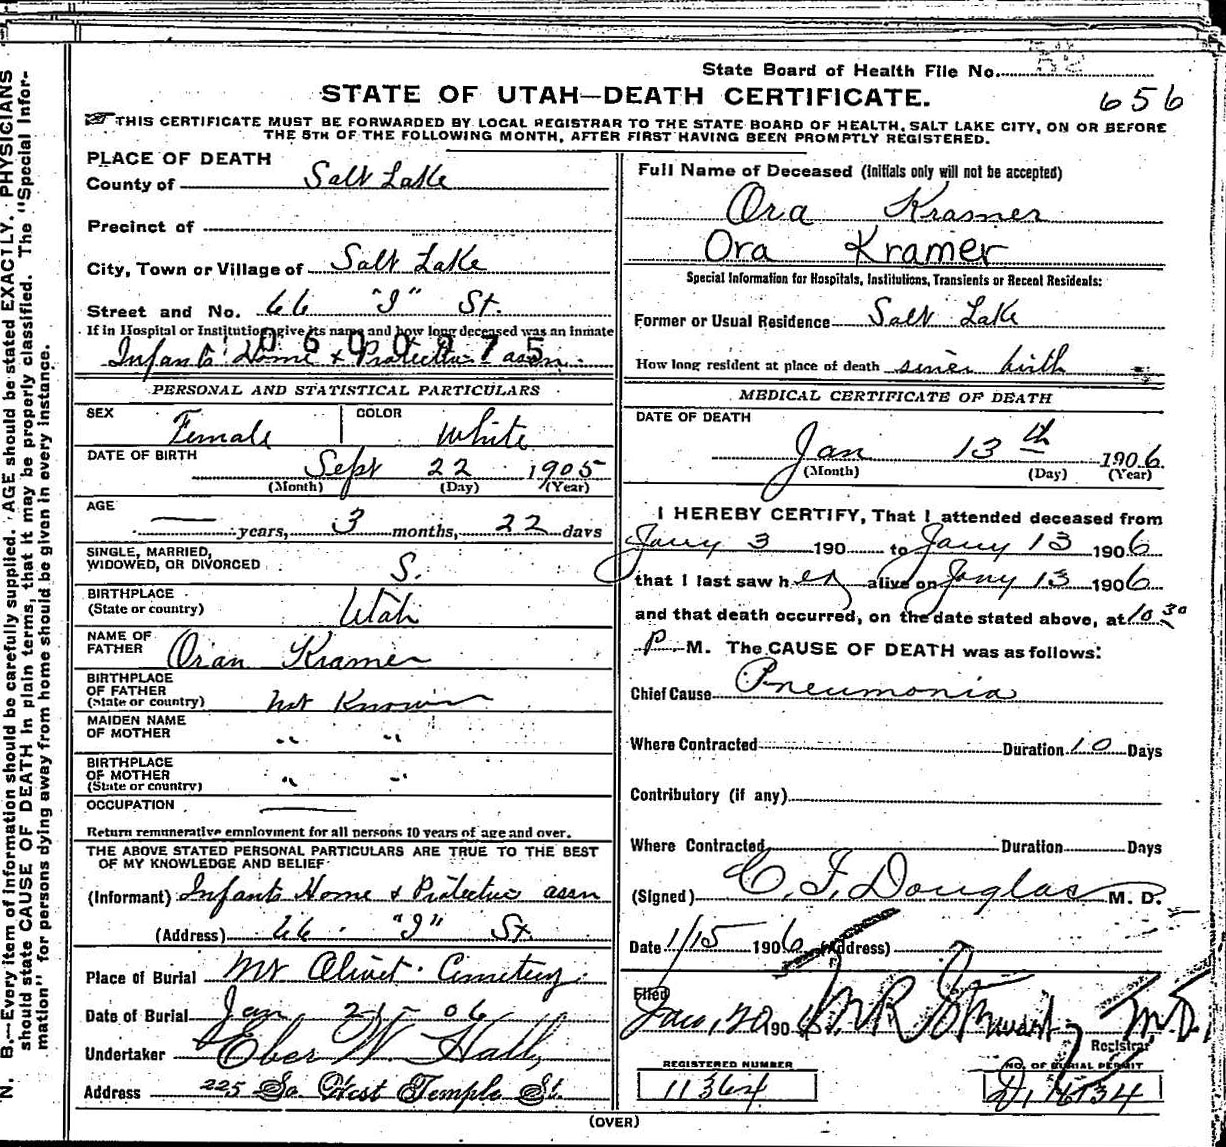 State Board of Health File No.
STATE OF UTAH—DEATH CERTIFICATE.
656
THIS CERTIFICATE MUST BE FORWARDED BY LOCAL REGISTRAR TO THE STATE BOARD OF HEALTH, SALT LAKE CITY, ON OR BEFORE
THE 5TH OF THE FOLLOWING MONTH, AFTER FIRST HAVING BEEN PROMPTLY REGISTERED.
N. B.—Every item of information should be carefully supplied. AGE should be stated EXACTLY. PHYSICIANS
should state CAUSE OF DEATH in plain terms, that it may be properly classified. The "Special Infor-
mation" for persons dying away from home should be given in every instance.
PLACE OF DEATH
County of Salt Lake
Precinct of
City, Town or Village of Salt Lake
Street and No. 66 "I" St.
If in Hospital or Institution give its name and how long deceased was an inmate
0600275
Infants Home & Protective assn.
PERSONAL AND STATISTICAL PARTICULARS
SEX Female COLOR White
DATE OF BIRTH Sept 22 1905
(Month) (Day) (Year)
AGE — years, 3 months, 22 days
SINGLE, MARRIED,
WIDOWED, OR DIVORCED S.
BIRTHPLACE
(State or country) Utah
NAME OF
FATHER Oran Kramer
BIRTHPLACE
OF FATHER
(State or country) Not Known
MAIDEN NAME
OF MOTHER " "
BIRTHPLACE
OF MOTHER
(State or country) " "
OCCUPATION —
Return remunerative employment for all persons 10 years of age and over.
THE ABOVE STATED PERSONAL PARTICULARS ARE TRUE TO THE BEST
OF MY KNOWLEDGE AND BELIEF
(Informant) Infants Home & Protective assn
(Address) 66 "I" St.
Place of Burial Mt Olivet Cemetery
Date of Burial Jan 06
Undertaker Eber W. Hall,
Address 225 So. West Temple St.
Full Name of Deceased (Initials only will not be accepted)
Ora Kramer
Ora Kramer
Special Information for Hospitals, Institutions, Transients or Recent Residents:
Former or Usual Residence Salt Lake
How long resident at place of death since birth
MEDICAL CERTIFICATE OF DEATH
DATE OF DEATH
Jan 13th 1906
(Month) (Day) (Year)
I HEREBY CERTIFY, That I attended deceased from
Jany 3 190 to Jany 13 1906
that I last saw her alive on Jany 13 1906
and that death occurred, on the date stated above, at 10.30
P M. The CAUSE OF DEATH was as follows:
Chief Cause Pneumonia
Where Contracted Duration 10 Days
Contributory (if any)
Where Contracted Duration Days
(Signed) C. F. Douglas M. D.
Date 1/15 1906 (Address)
Filed
Jan, 20 190 M R Stewart M.D.
Registrar
REGISTERED NUMBER
11364
NO. OF BURIAL PERMIT
(OVER)